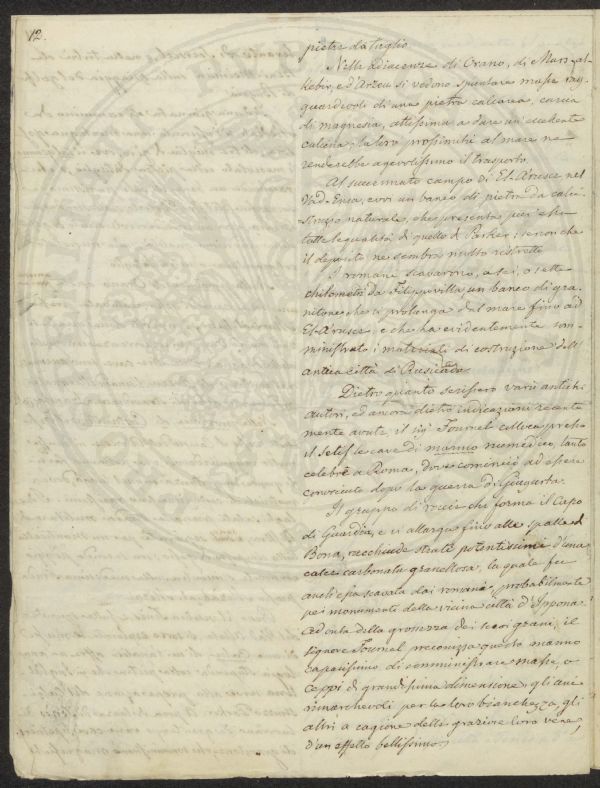 12.
pietre da taglio
Nelle adiacenze di Orano, di Mars-al-
kebir, e d'Arzeu si vedono spuntare masse rag-
guardevoli di una pietra calcarea, carica
di magnesia, attissima a dare un'eccellente
calcina; la loro prossimità al mare ne
renderebbe agevolissimo il trasporto.
Al succennato campo di El-Arusce nel
Uad-Ensa, evvi un banco di pietra da calci-
struzzo naturale, che presenta
tutte le qualità di quello di Parker; senonche
il deposito ne sembra molto ristretto
I romani scavarono, a sei, o sette
chilometri da Filippovilla un banco di gra-
nitone che si prolunga dal mare fino ad
El-Arusce, e che ha evidentemente som-
ministrato i materiali di costruzione dell'
antica città di Rusicada.
Dietro quanto scrissero varii antichi
autori, ed ancora dietro indicazioni recente-
mente avute, il sig.r Fournel colloca presso
il Setif le cave di marmo numidico, tanto
celebre a Roma, dove cominciò ad essere
conosciuto dopo la guerra di Giugurta.
Il gruppo di roccie che forma il Capo
di Guardia, e si allarga fino alle spalle di
Bona, racchiude strati potentissimi d'una
calce carbonata granellosa, la quale fu
anch'essa scavata dai romani, probabilmente
pei monumenti della vicina città d'Ippona.
Ad onta della grossezza dei suoi grani, il
signore Fournel preconizza questo marmo
capacissimo di somministrare masse, o
ceppi di grandissima dimensione, gli uni
rimarchevoli per la loro bianchezza, gli
altri a cagione delle graziose loro vene,
d'un effetto bellissimo.